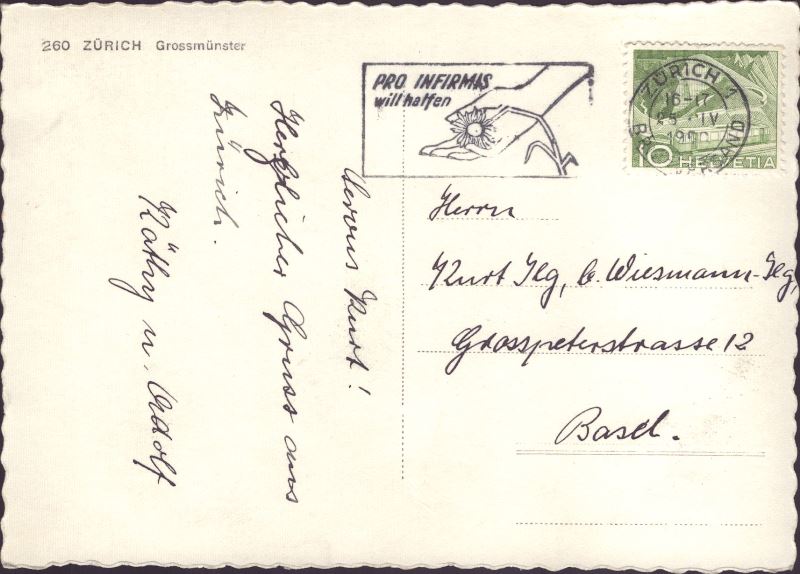 260 ZÜRICH Grossmünster
PRO INFIRMIS
will helfen
ZÜRICH 1
16-17
IV
10 HELVETIA
Servus Kurt!
Herzlicher Gruss aus
Zürich.
Käthy u. Adolf
Herrn
Kurt Ilg, b. Wiesmann-Ilg,
Grosspeterstrasse 12
Basel.